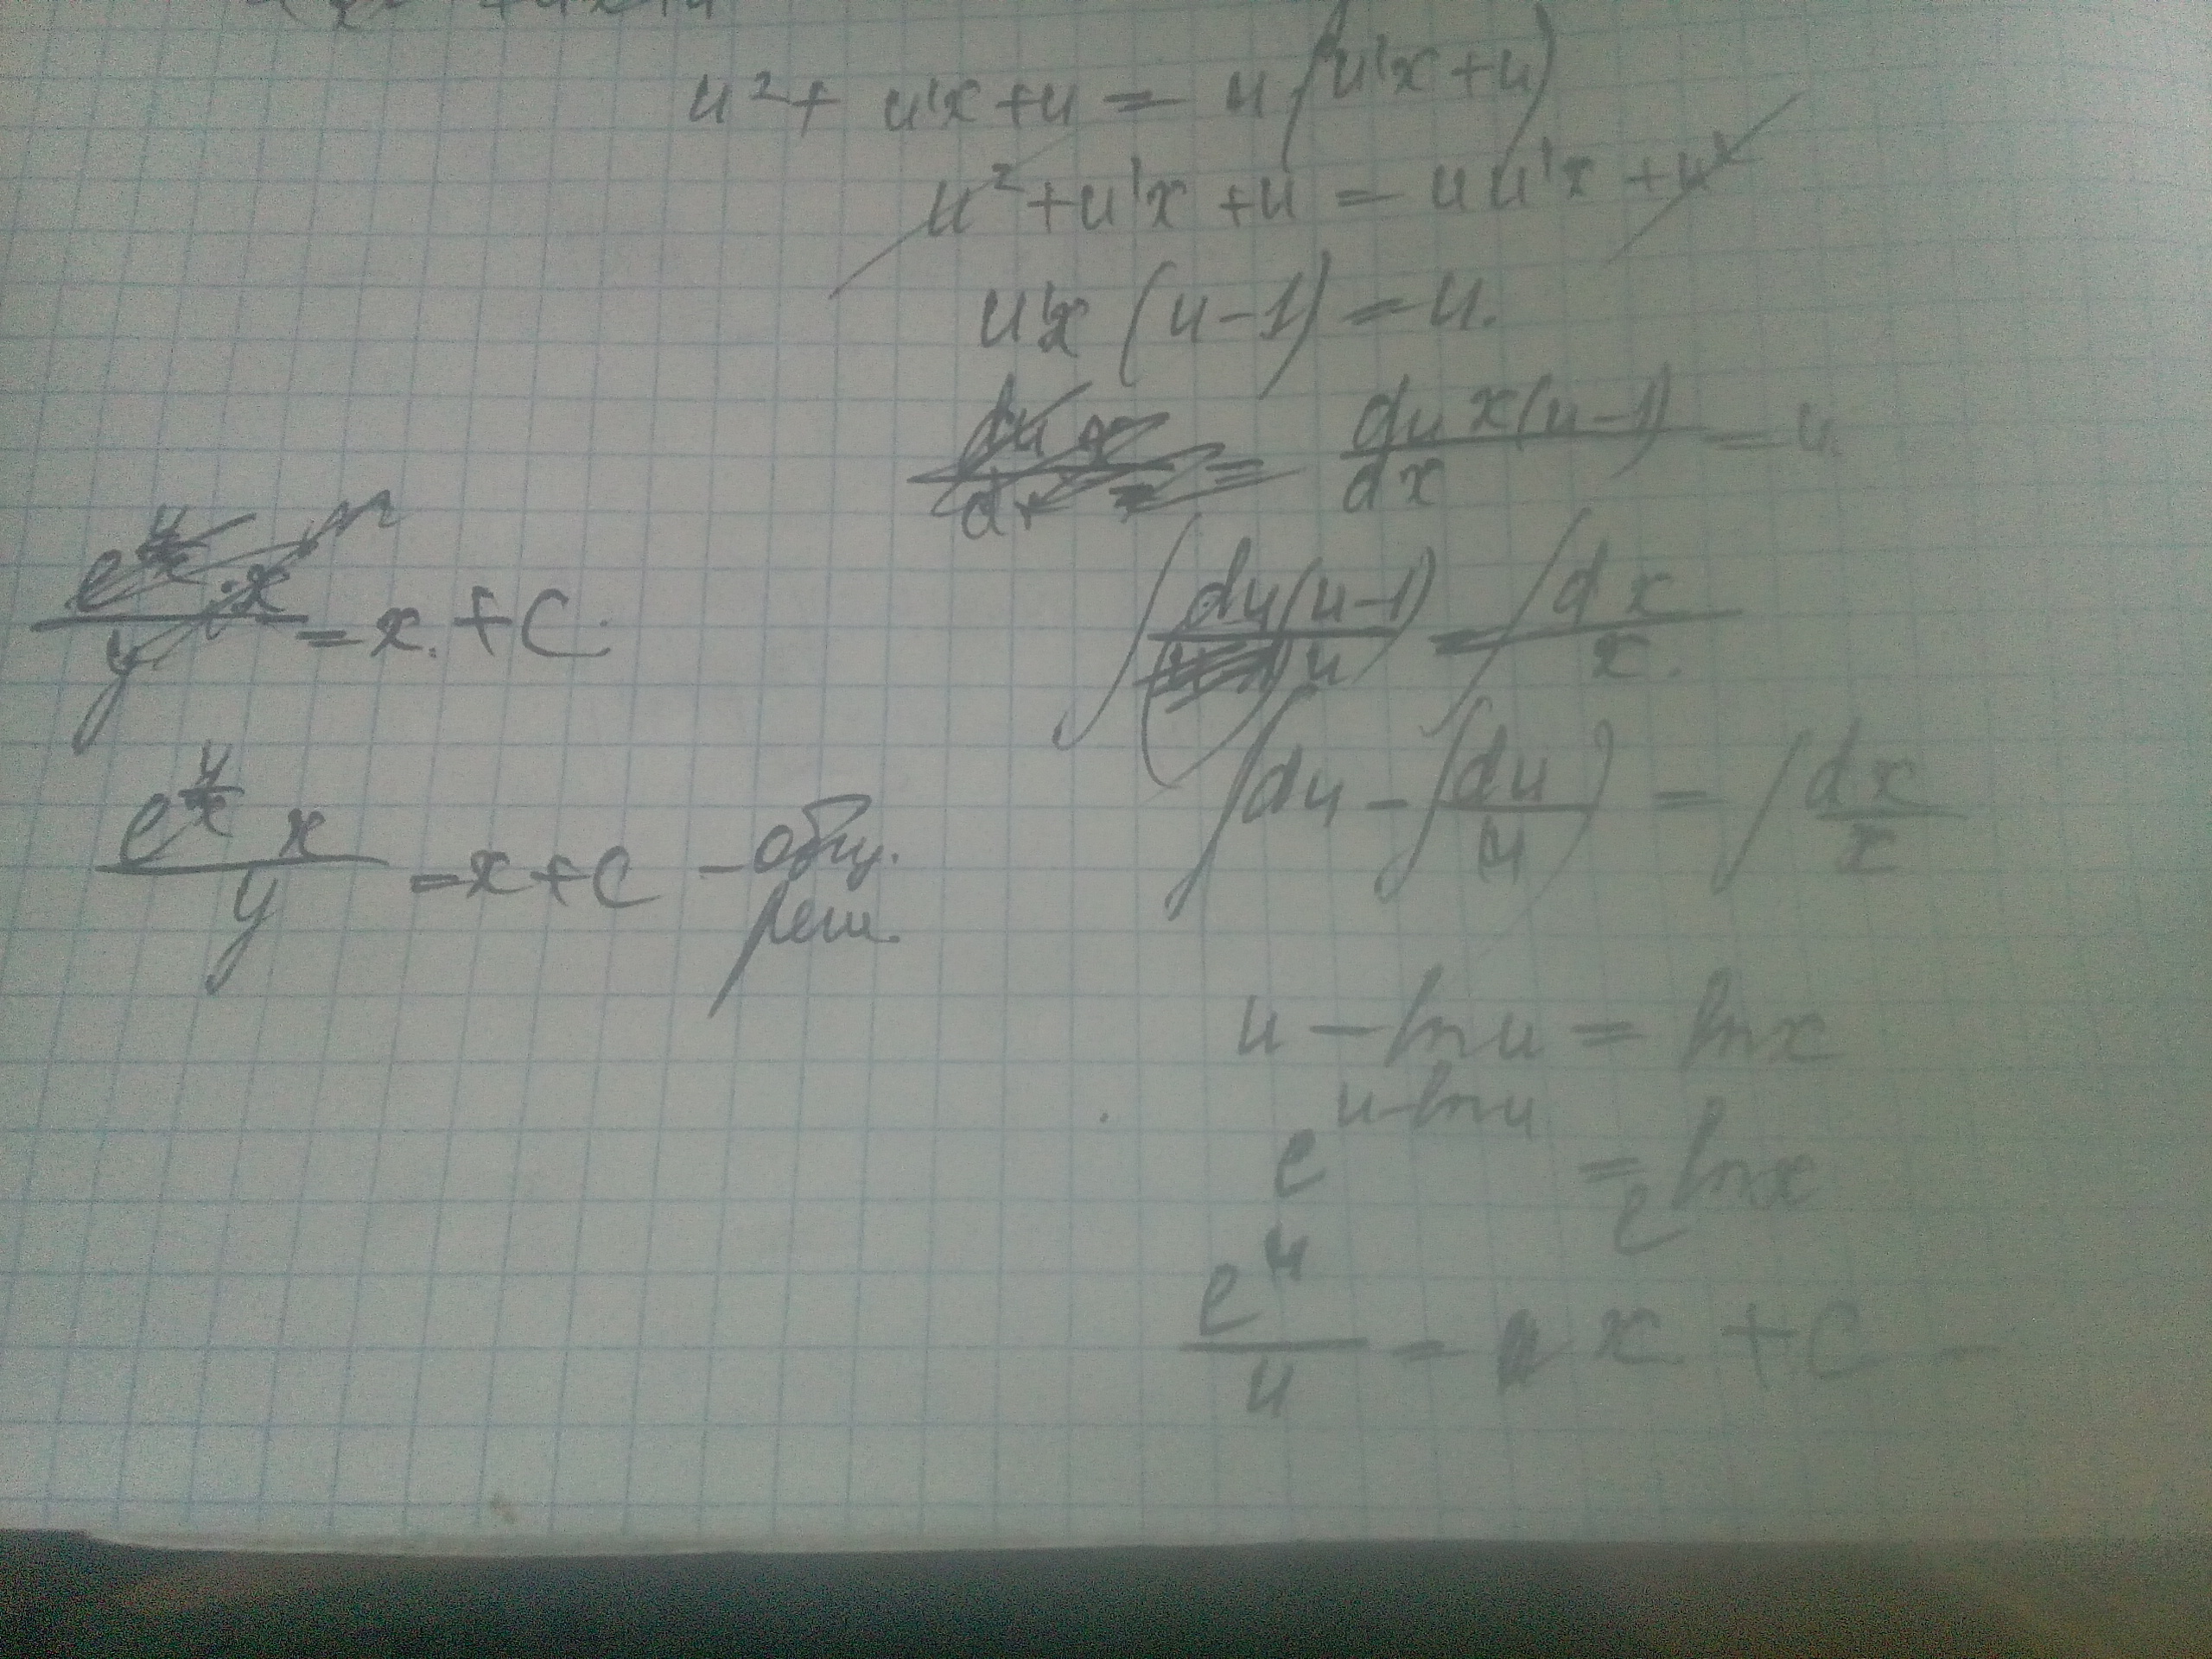 u² + u'x + u = u(u'x + u)
u² + u'x + u = uu'x + u²
u'x (u - 1) = u.
du x(u - 1) / dx = u.
∫ du(u - 1) / u = ∫ dx / x.
∫ du - ∫ du / u = ∫ dx / x
u - ln u = ln x
e^(u - ln u) = e^(ln x)
e^u / u = x + C
e^(y/x) · x / y = x. + C.
e^(y/x) x / y = x + C - общ.
реш.